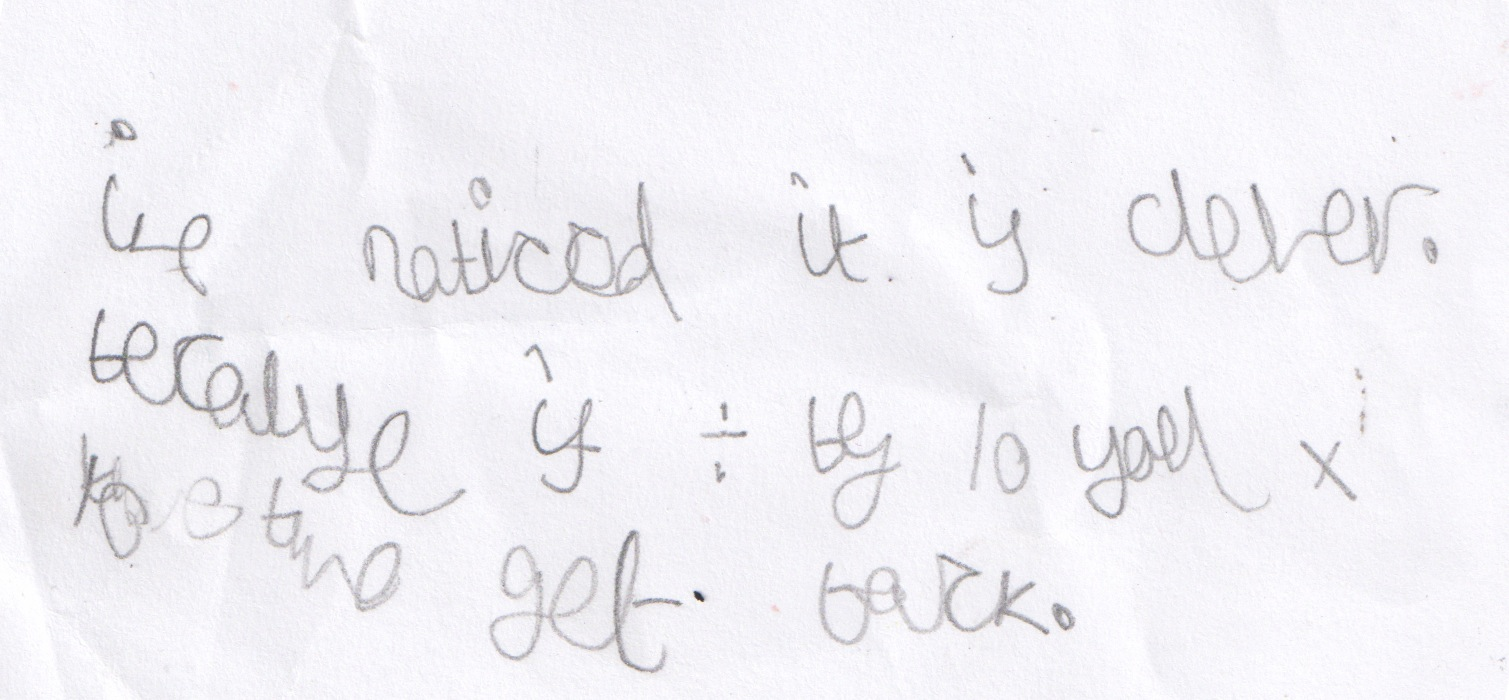 ive noticed it is clever.
because if ÷ by 10 you x
two get back.